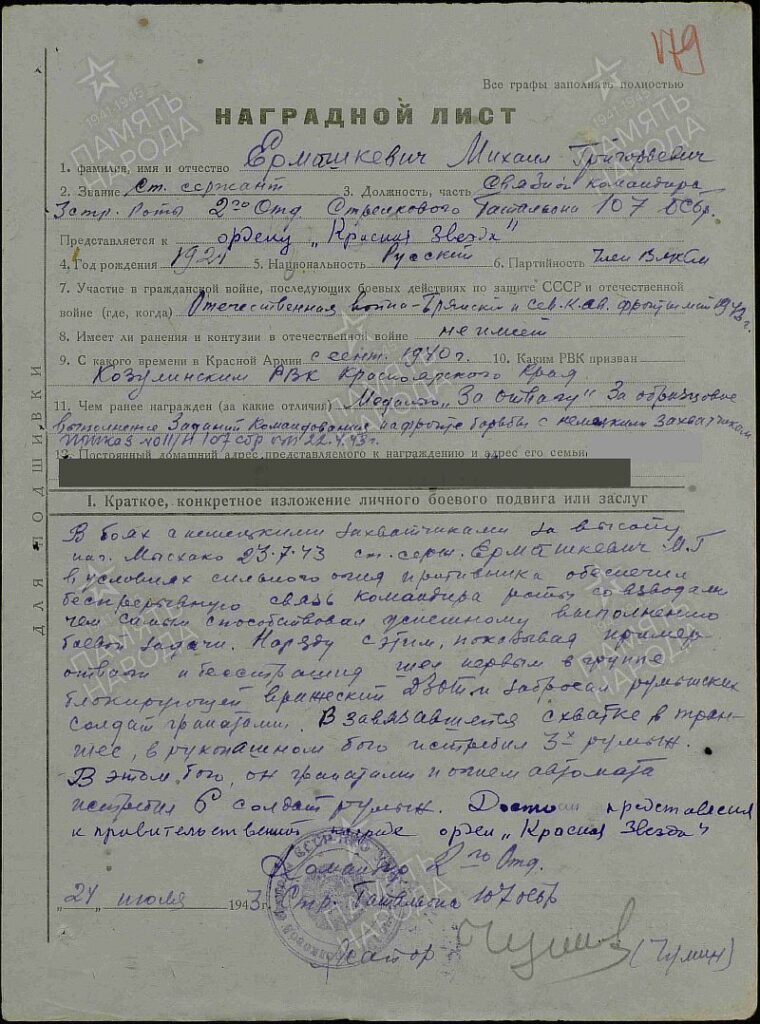 179
Все графы заполнять полностью
НАГРАДНОЙ ЛИСТ
1. фамилия, имя и отчество Ермашкевич Михаил Григорьевич
2. Звание ст. сержант 3. Должность, часть Связной командира
3 стр. Роты 2го Отд. Стрелкового Батальона 107 ОСбр.
Представляется к ордену „Красная Звезда"
4. Год рождения 1921 5. Национальность Русский 6. Партийность Член ВЛКСМ
7. Участие в гражданской войне, последующих боевых действиях по защите СССР и отечественной
войне (где, когда) Отечественная война - Брянский и Сев. Кав. фронты 1943г.
8. Имеет ли ранения и контузии в отечественной войне не имеет
9. С какого времени в Красной Армии с сент. 1940г. 10. Каким РВК призван
Козулинским РВК Красноярского Края
11. Чем ранее награжден (за какие отличия) Медалью „За отвагу" За образцовое
выполнение Заданий Командования на фронте борьбы с немецкими Захватчиками
приказ 107 сбр от 22.4.43г.
12. Постоянный домашний адрес представляемого к награждению и адрес его семьи
I. Краткое, конкретное изложение личного боевого подвига или заслуг
В боях с немецкими захватчиками за высоту
Мысхако 23.7.43 ст. серж. Ермашкевич М.Г
в условиях сильного огня противника обеспечил
беспрерывную связь командира роты со взводами
чем самым способствовал успешному выполнению
боевой задачи. Наряду с этим, показывая пример
отваги и бесстрашия шел первым в группе
блокирующей вражеский ДЗОТ и забросал румынских
солдат гранатами. В завязавшейся схватке в тран-
шее, в рукопашном бою истребил 3х румын.
В этом бою, он гранатами и огнем автомата
истребил 6 солдат румын. Достоин представления
к правительственной награде орден „Красная Звезда"
Командир 2го Отд.
„24" июля 1943г. Стр. Батальона 107 осбр
Майор (Чумин)
ДЛЯ ПОДШИВКИ
1941-1945
ПАМЯТЬ
НАРОДА